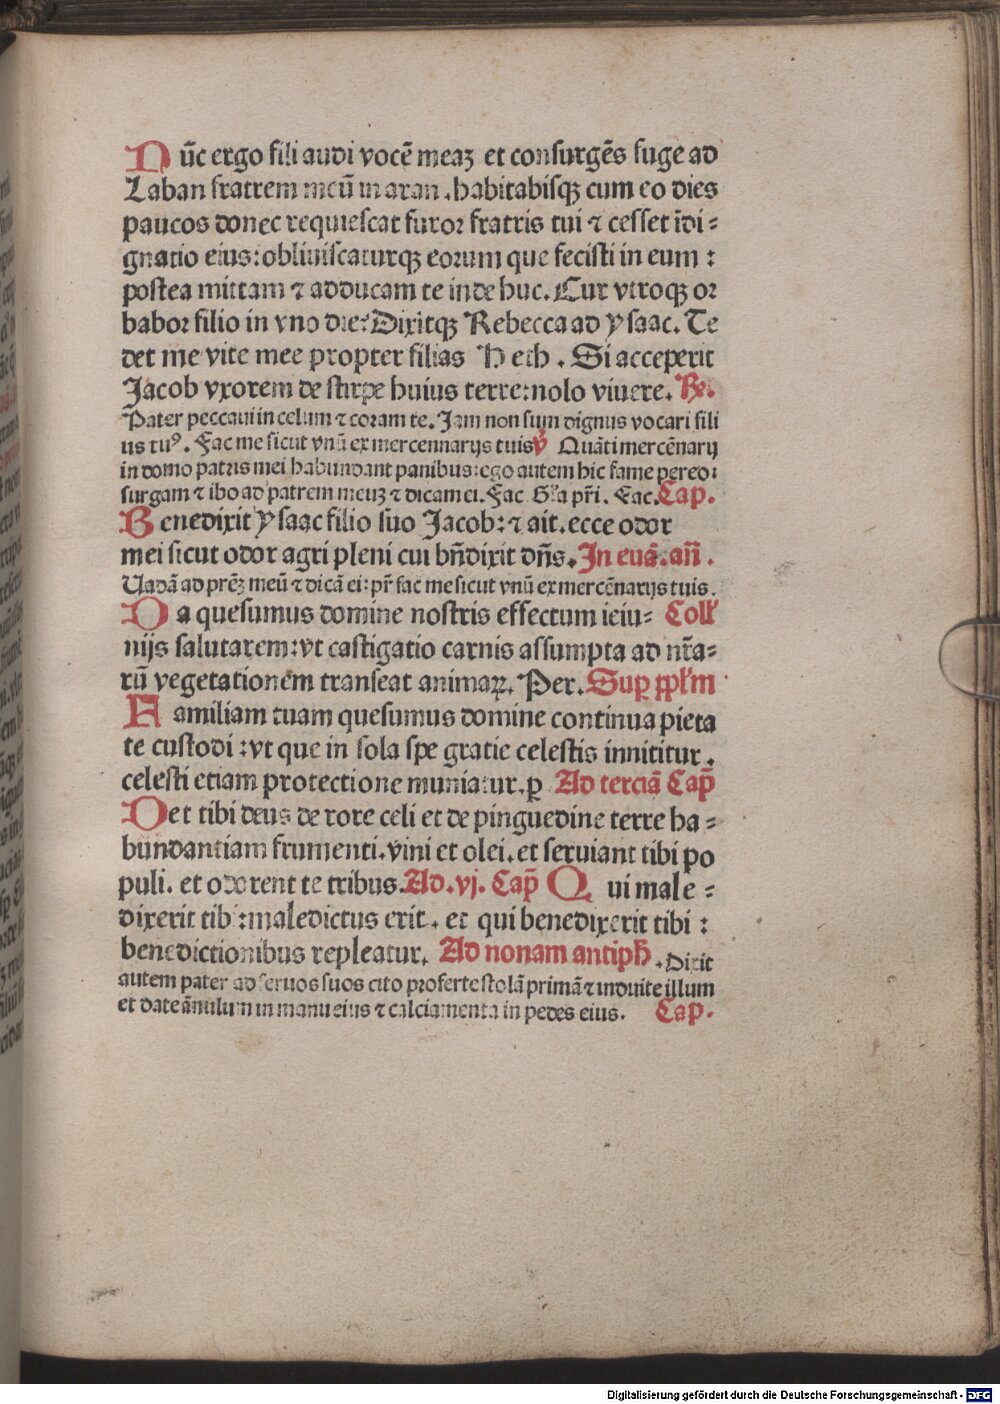 Nūc ergo fili audi vocē meaꝫ et consurgēs fuge ad
Laban fratrem meū in aran .habitabisqꝫ cum eo dies
paucos donec requiescat furoꝛ fratris tui ⁊ cesset īdi⸗
gnatio eius:obliuiscaturqꝫ eoꝛum que fecisti in eum :
postea mittam ⁊ adducam te inde huc. Cur vtroqꝫ oꝛ
baboꝛ filio in vno die? Dixitqꝫ Rebecca ad ysaac. Te
det me vite mee propter filias Heth . Si acceperit
Jacob vxorem de stirpe huius terre:nolo viuere. R̷.
Pater peccaui in celum ⁊ coram te. Jam non sum dignus vocari fili
us tuꝰ. Fac me sicut vnū ex mercennarijs tuis ℣ Quāti mercēnarij
in domo patris mei habundant panibus:ego autem hic fame pereo:
surgam ⁊ ibo ad patrem meuꝫ ⁊ dicam ei. Fac Gl'a pr̄i. Fac. Cap.
Benedixit ysaac filio suo Jacob:⁊ ait.ecce odoꝛ
mei sicut odoꝛ agri pleni cui bn̄dixit dn̄s. In euā.an̄.
Uadā ad prēꝫ meū ⁊ dicā ei: pr̄ fac me sicut vnū ex mercēnarijs tuis.
Da quesumus domine nostris effectum ieiu⸗ Coll'
nijs salutarem:vt castigatio carnis assumpta ad nr̄a⸗
rū vegetationem transeat animaꝝ. Per. Sup pplm
Familiam tuam quesumus domine continua pieta
te custodi :vt que in sola spe gratie celestis innititur .
celesti etiam protectione muniatur.ꝑ Ad terciā Cap̄
Det tibi deus de rore celi et de pinguedine terre ha⸗
bundantiam frumenti.vini et olei.et seruiant tibi po
puli. et adorent te tribus. Ad.vj. Cap̄ Qui male⸗
dixerit tibi:maledictus erit. et qui benedixerit tibi :
benedictionibus repleatur. Ad nonam antiph̄ .Dixit
autem pater ad seruos suos cito proferte stolā primā ⁊ induite illum
et date ānulum in manu eius ⁊ calciamenta in pedes eius. Cap.
Digitalisierung gefördert durch die Deutsche Forschungsgemeinschaft - DFG